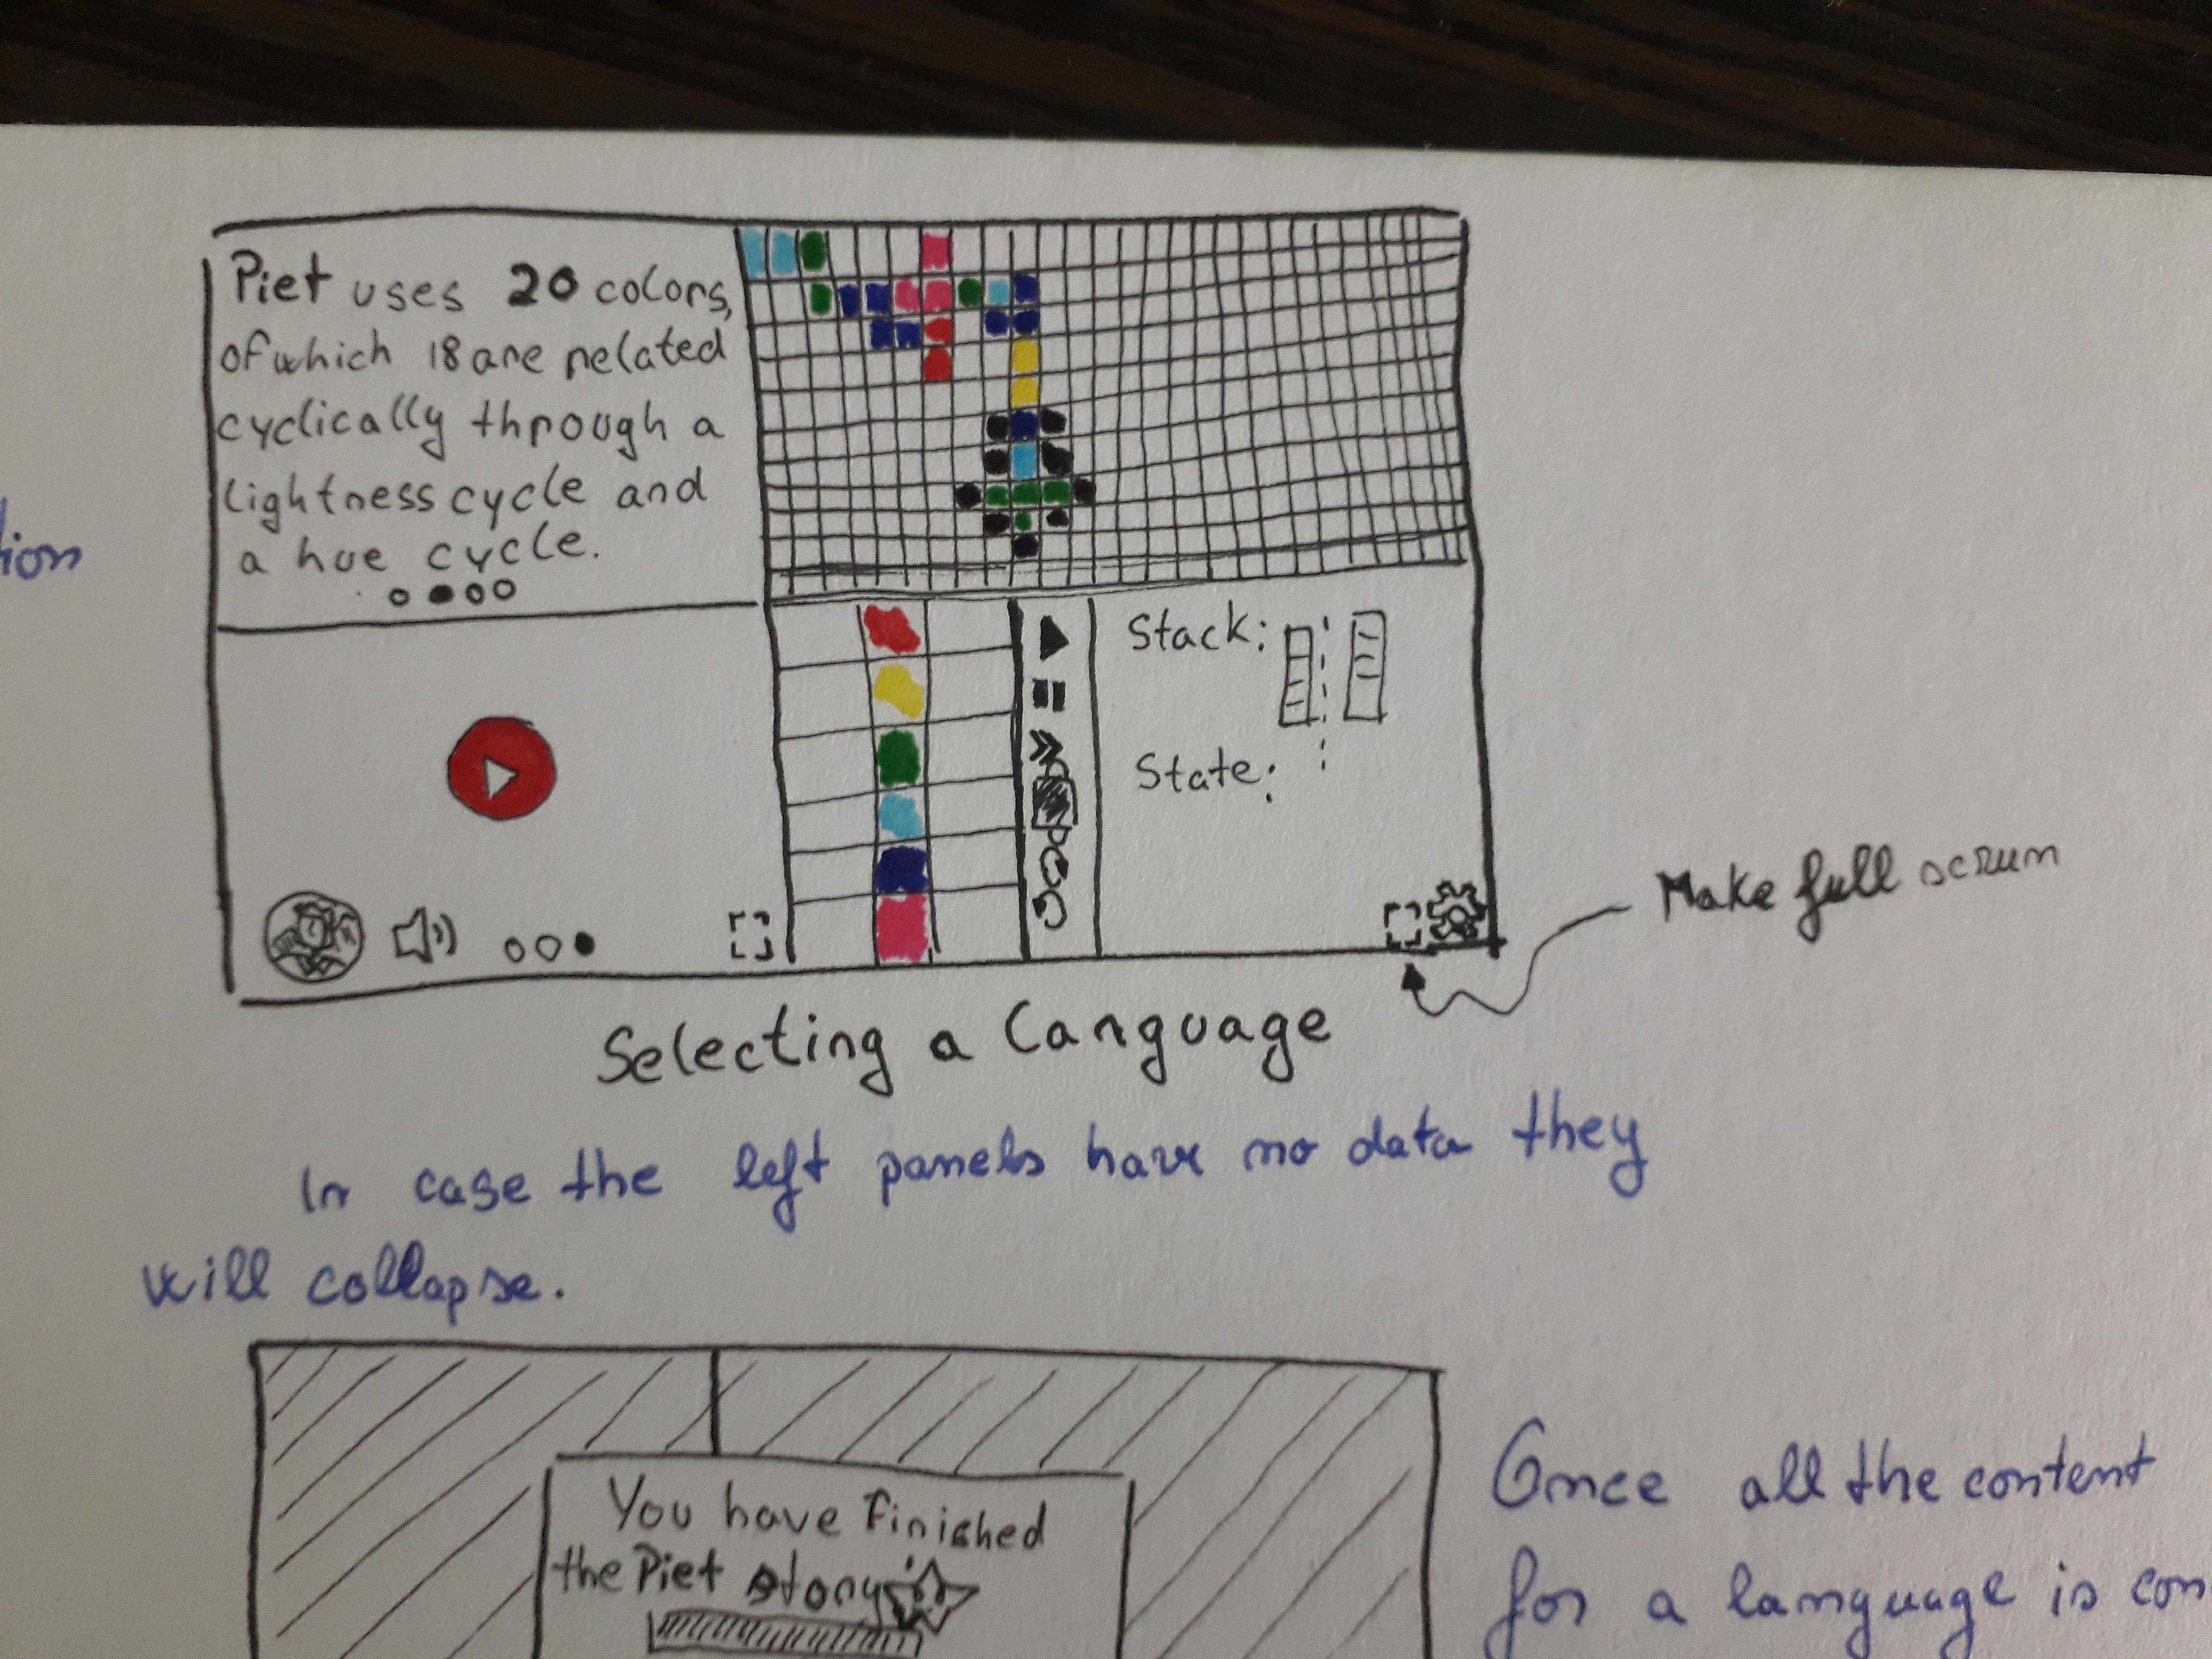 Piet uses 20 colors,
of which 18 are related
cyclically through a
lightness cycle and
a hue cycle.
Stack:
State:
tion
Make full scrum
Selecting a Language
In case the left panels have no data they
will collapse.
You have Finished
the Piet story
Once all the content
for a language is con